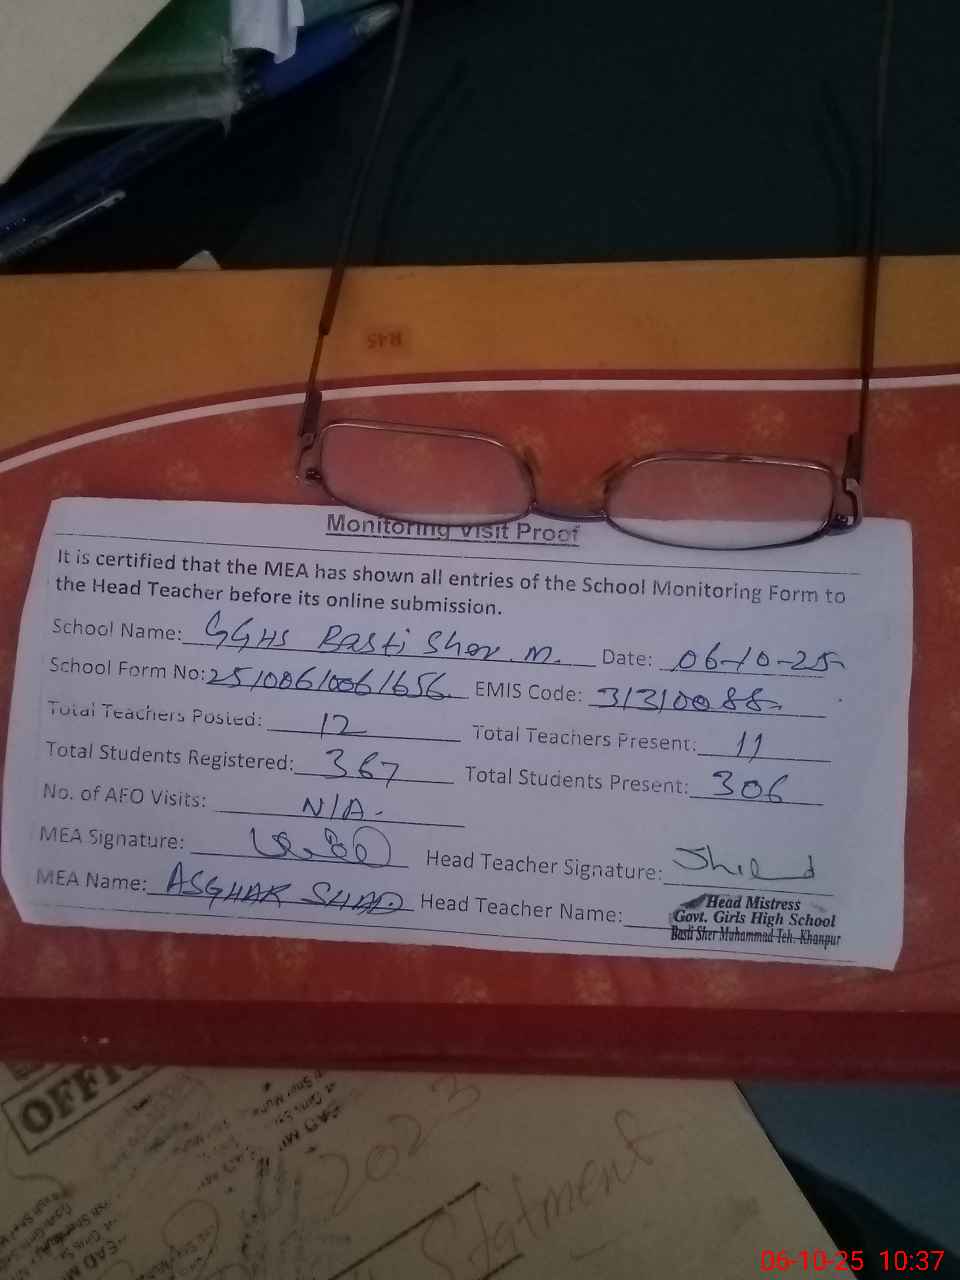 R45
Monitoring Visit Proof
It is certified that the MEA has shown all entries of the School Monitoring Form to
the Head Teacher before its online submission.
School Name: GGHS Basti Sher M. Date: 06-10-25
School Form No: 25100610061656 EMIS Code: 31310088
Total Teachers Posted: 12 Total Teachers Present: 11
Total Students Registered: 367 Total Students Present: 306
No. of AFO Visits: N/A-
MEA Signature: Head Teacher Signature:
MEA Name: ASGHAR SHAD Head Teacher Name:
Head Mistress
Govt. Girls High School
Basti Sher Muhammad Teh. Khanpur
2023
Statment
06-10-25 10:37